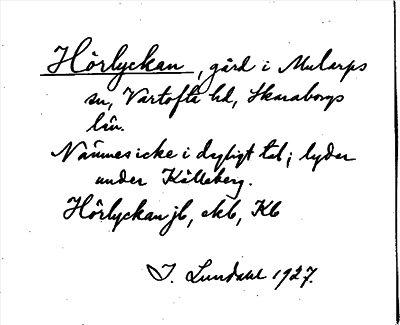 Hörlyckan, gård i Mularps
sn, Vartofta hd, Skaraborgs
län.
Nämnes icke i dagligt tal; lyder
under Källeberg.
Hörlyckan jb, ekb, Kb
I. Lundahl 1927.